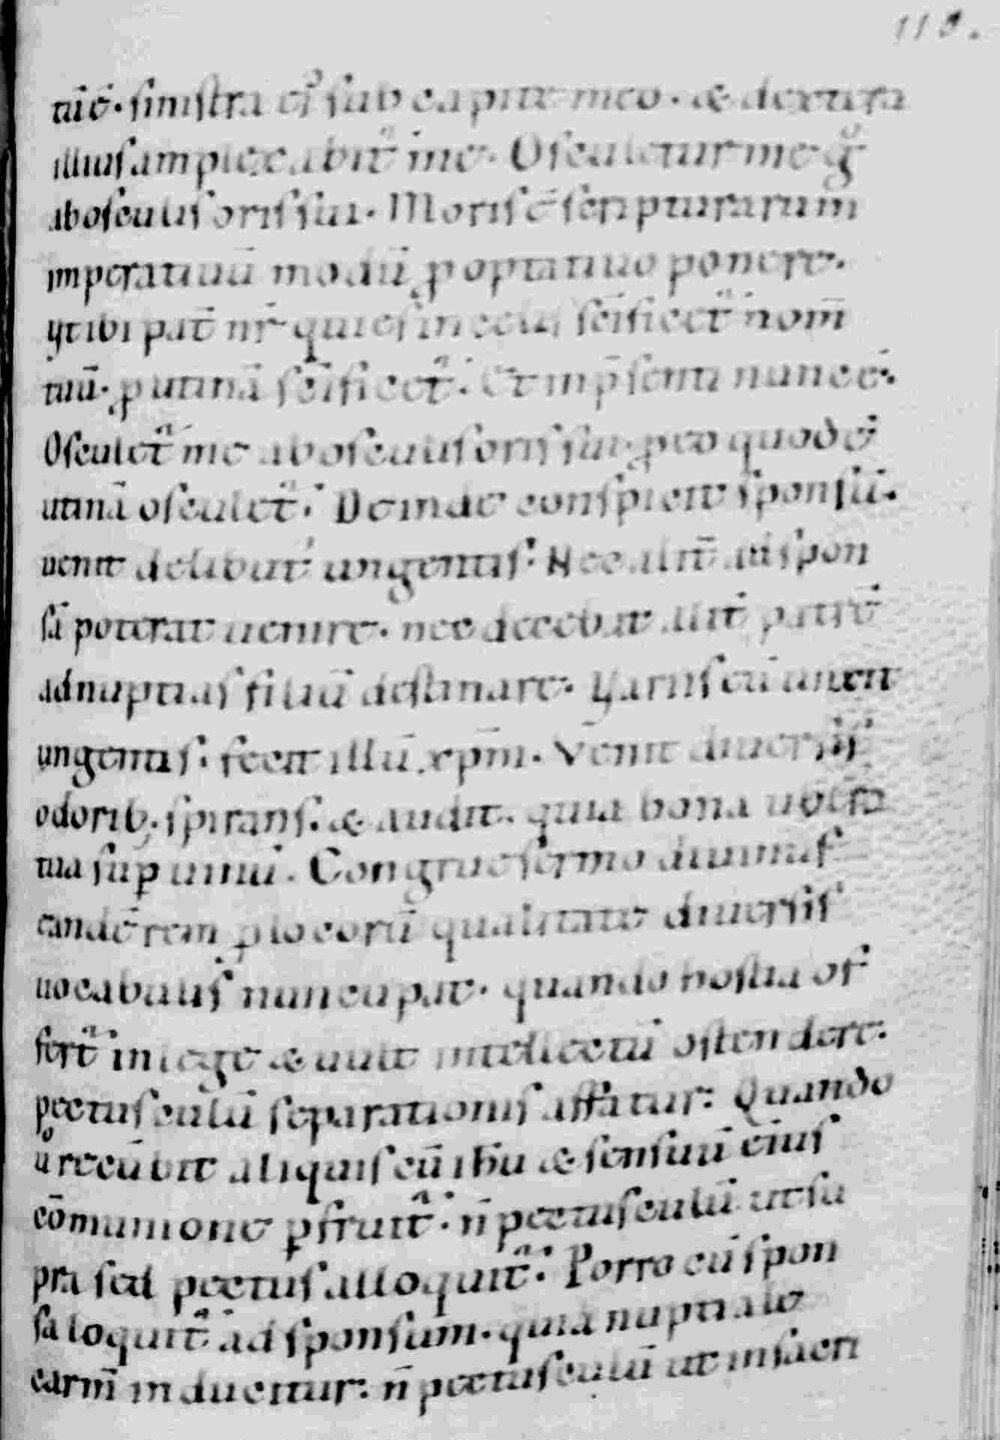 110.
tu̅c̅. sinistra ei᷒ sub capite meo. & dextera
illius amplexabit᷑ me. Osculetur me g̊
ab osculis oris sui. Moris e̅ scripturarum
imperatiuu̅ modu̅ ꝓ optatiuo ponere.
ut ibi pat̅ nr̅ qui es in celis sc̅ificet᷑ nom̅
tuu̅. ꝓ utina̅ sc̅ificet᷑. Et in p̅senti nunc e̅.
Osculet᷑ me ab osculis oris sui. ꝓ eo quod e̅
utina̅ osculet᷑. Deinde conspicit sponsu̅.
uenit delibut᷒ ungentis. Nec alit̅ ad spon
sa̅ poterat uenire. nec decebat alit̅ patre̅
ad nuptias filiu̅ destinare. Uariis eu̅ unxit
ungentis. fecit illu̅ xp̅m. Venit diuersis
odorib; spirans. & audit. quia bona ubera
tua suꝑ uinu̅. Congrue sermo diuinus
eande̅ rem ꝓ locoru̅ qualitate diuersis
uocabulis nuncupat. quando hostia of
fert᷑ in lege & uult intellectu̅ ostendere.
pectusculu̅ separationis affatur. Quando
uº recu̅bit aliquis cu̅ ih̅u & sensuu̅ eius
co̅munione ꝑfruit᷑. n̅ pectusculu̅ ut su
pra sed pectus alloquit᷑. Porro cu̅ spon
sa loquit᷑ ad sponsum. quia nuptiale
carm̅ inducitur. n̅ pectusculu̅ ut in sacri